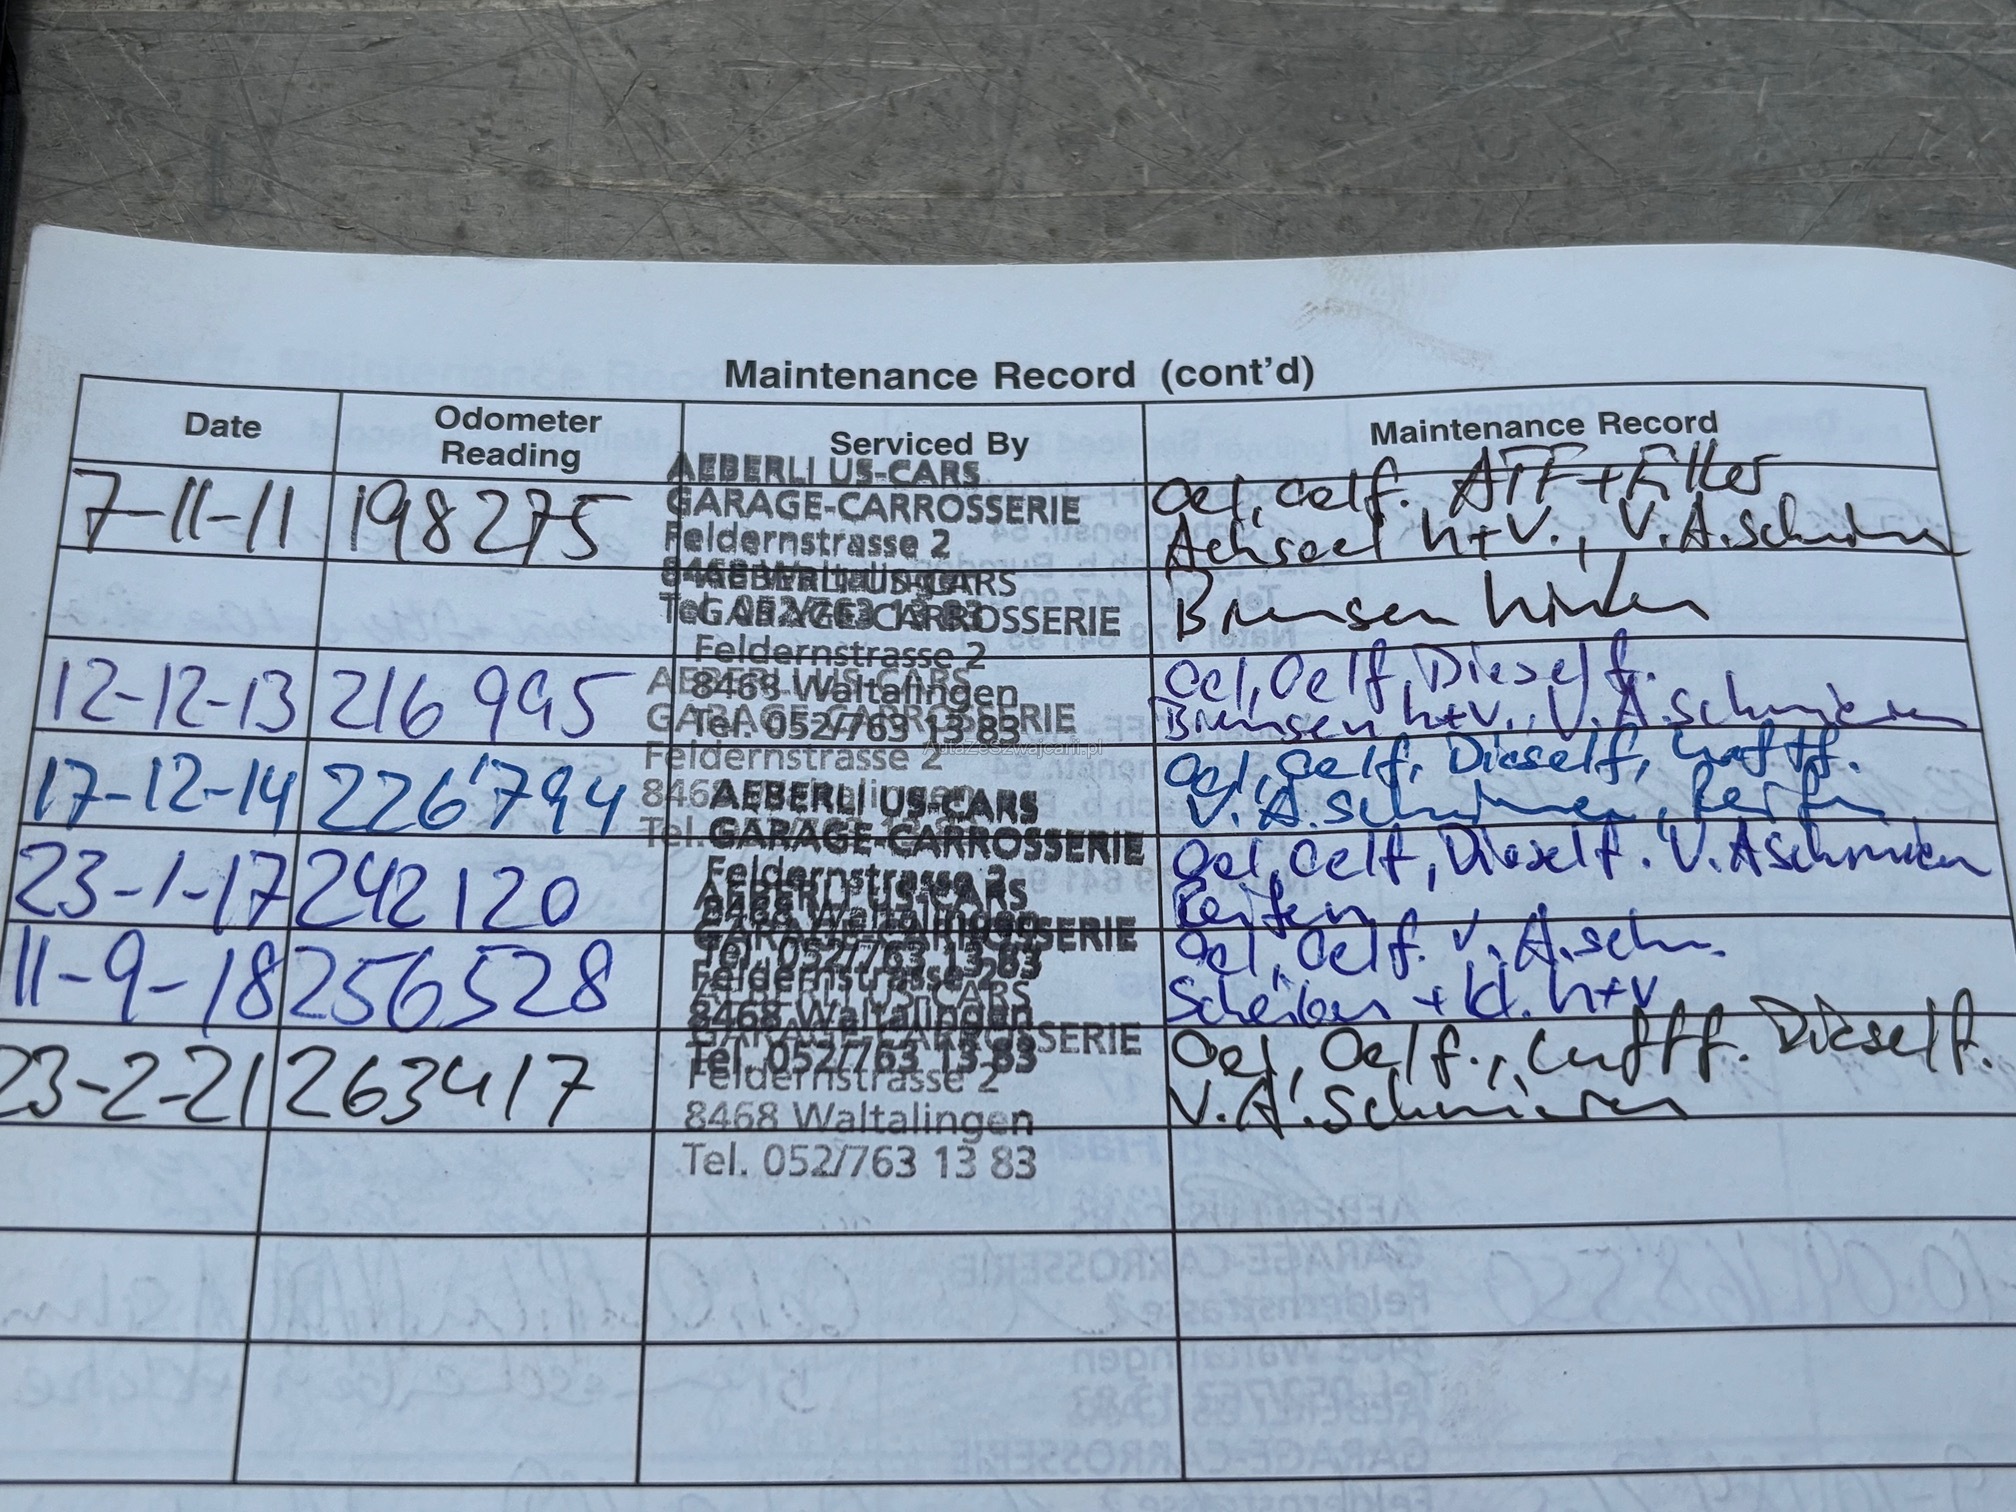 Maintenance Record (cont'd)
Date
Odometer
Reading
Serviced By
Maintenance Record
7-11-11
198275
AEBERLI US-CARS
GARAGE-CARROSSERIE
Feldernstrasse 2
8468 Waltalingen
Tel. 052/763 13 83
Oel, Oelf. ATF+Filter
Achsoel h+V., V.A.Schm
Bremsen hinten
AEBERLI US-CARS
GARAGE-CARROSSERIE
Feldernstrasse 2
8468 Waltalingen
Tel. 052/763 13 83
12-12-13
216 995
Oel, Oelf, Dieself.
Bremsen h+v., V.A.Schmieren
AEBERLI US-CARS
GARAGE-CARROSSERIE
Feldernstrasse 2
8468 Waltalingen
Tel.
17-12-14
226'794
Oel, Oelf, Dieself, Luftf.
V.A.schmieren, Reifen
AEBERLI US-CARS
GARAGE-CARROSSERIE
Feldernstrasse 2
8468 Waltalingen
Tel. 052/763 13 83
23-1-17
242120
Oel, Oelf, Dieself. V.A Schmieren
Reifen
AEBERLI US-CARS
GARAGE-CARROSSERIE
Feldernstrasse 2
8468 Waltalingen
Tel. 052/763 13 83
11-9-18
256528
Oel, Oelf. V.A.schm.
Scheiben + Kl. h+v
AEBERLI US-CARS
GARAGE-CARROSSERIE
Feldernstrasse 2
8468 Waltalingen
Tel. 052/763 13 83
23-2-21
263417
Oel, Oelf., Luftf. Dieself.
V.A.Schmieren
AutaZeSzwajcarii.pl